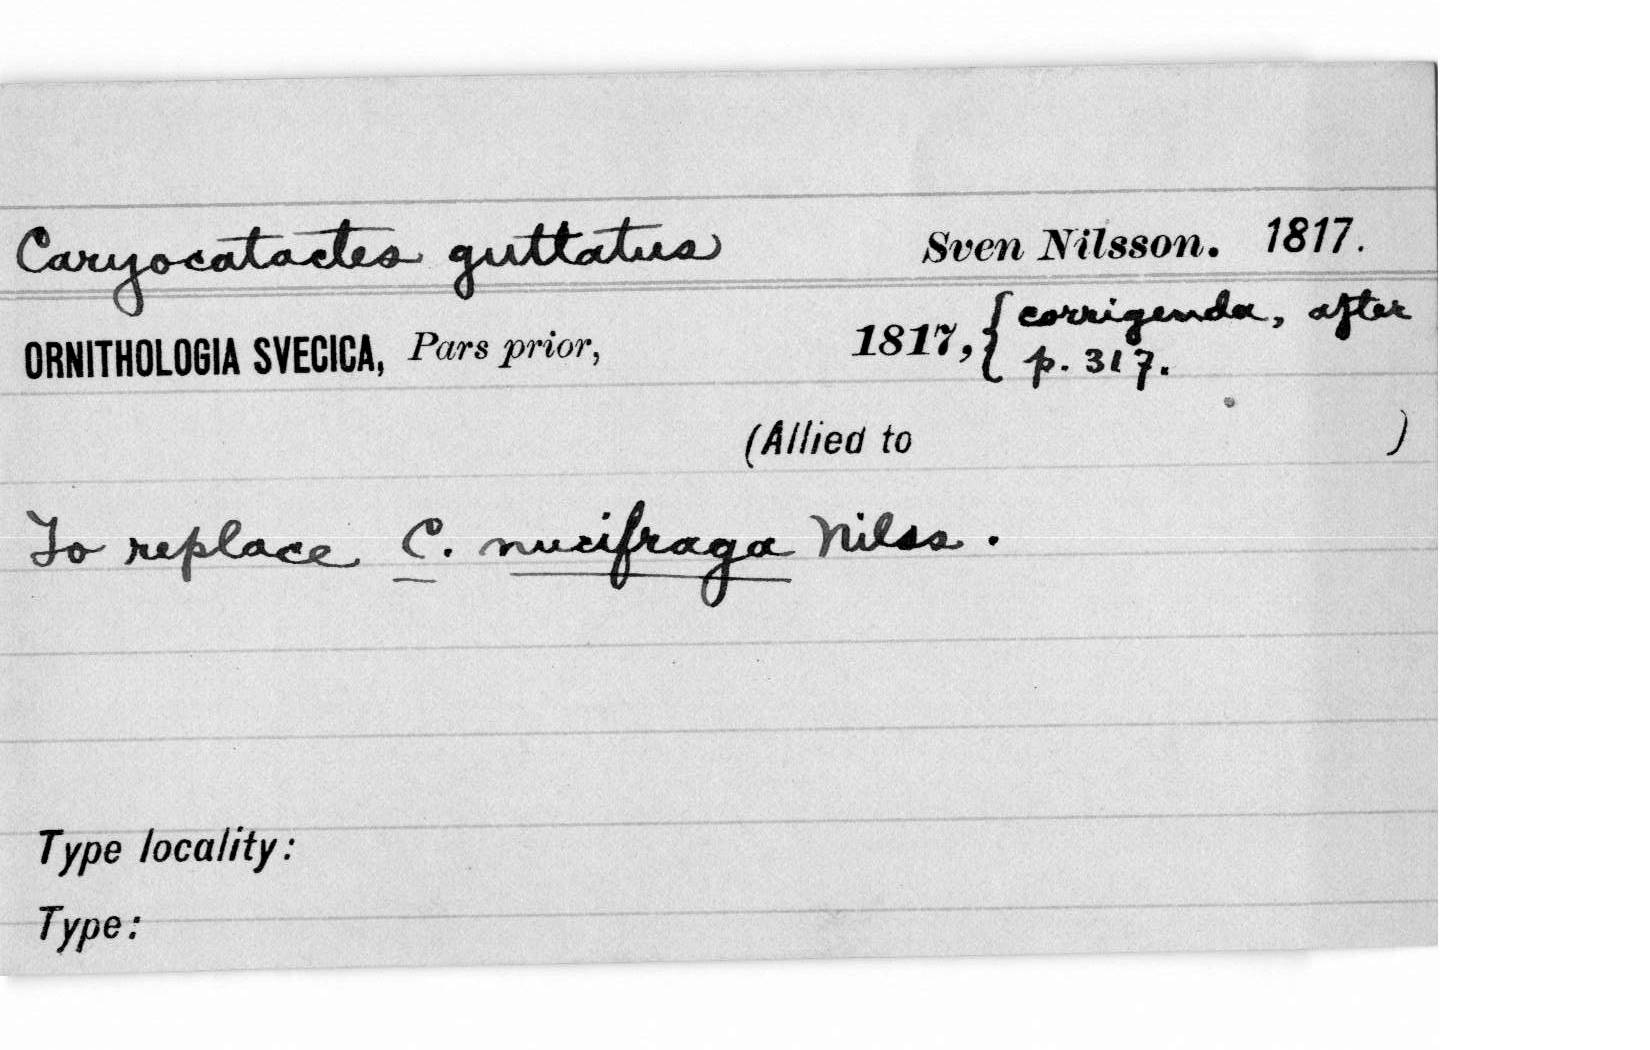 Caryocatactes guttatus Sven Nilsson. 1817.
ORNITHOLOGIA SVECICA, Pars prior, 1817, { corrigenda, after
p. 317.
(Allied to )
To replace C. nucifraga Nilss.
Type locality:
Type: